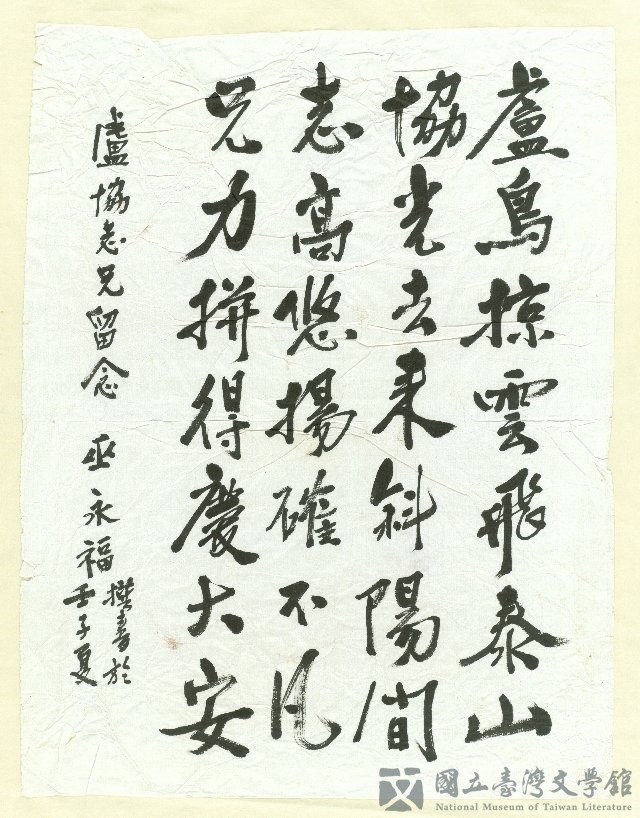 盧鳥掠雲飛泰山
協光去來斜陽間
志高悠揚確不凡
兄力拼得慶大安
盧協志兄留念 巫永福撰書於
壬子夏
國立臺灣文學館
National Museum of Taiwan Literature